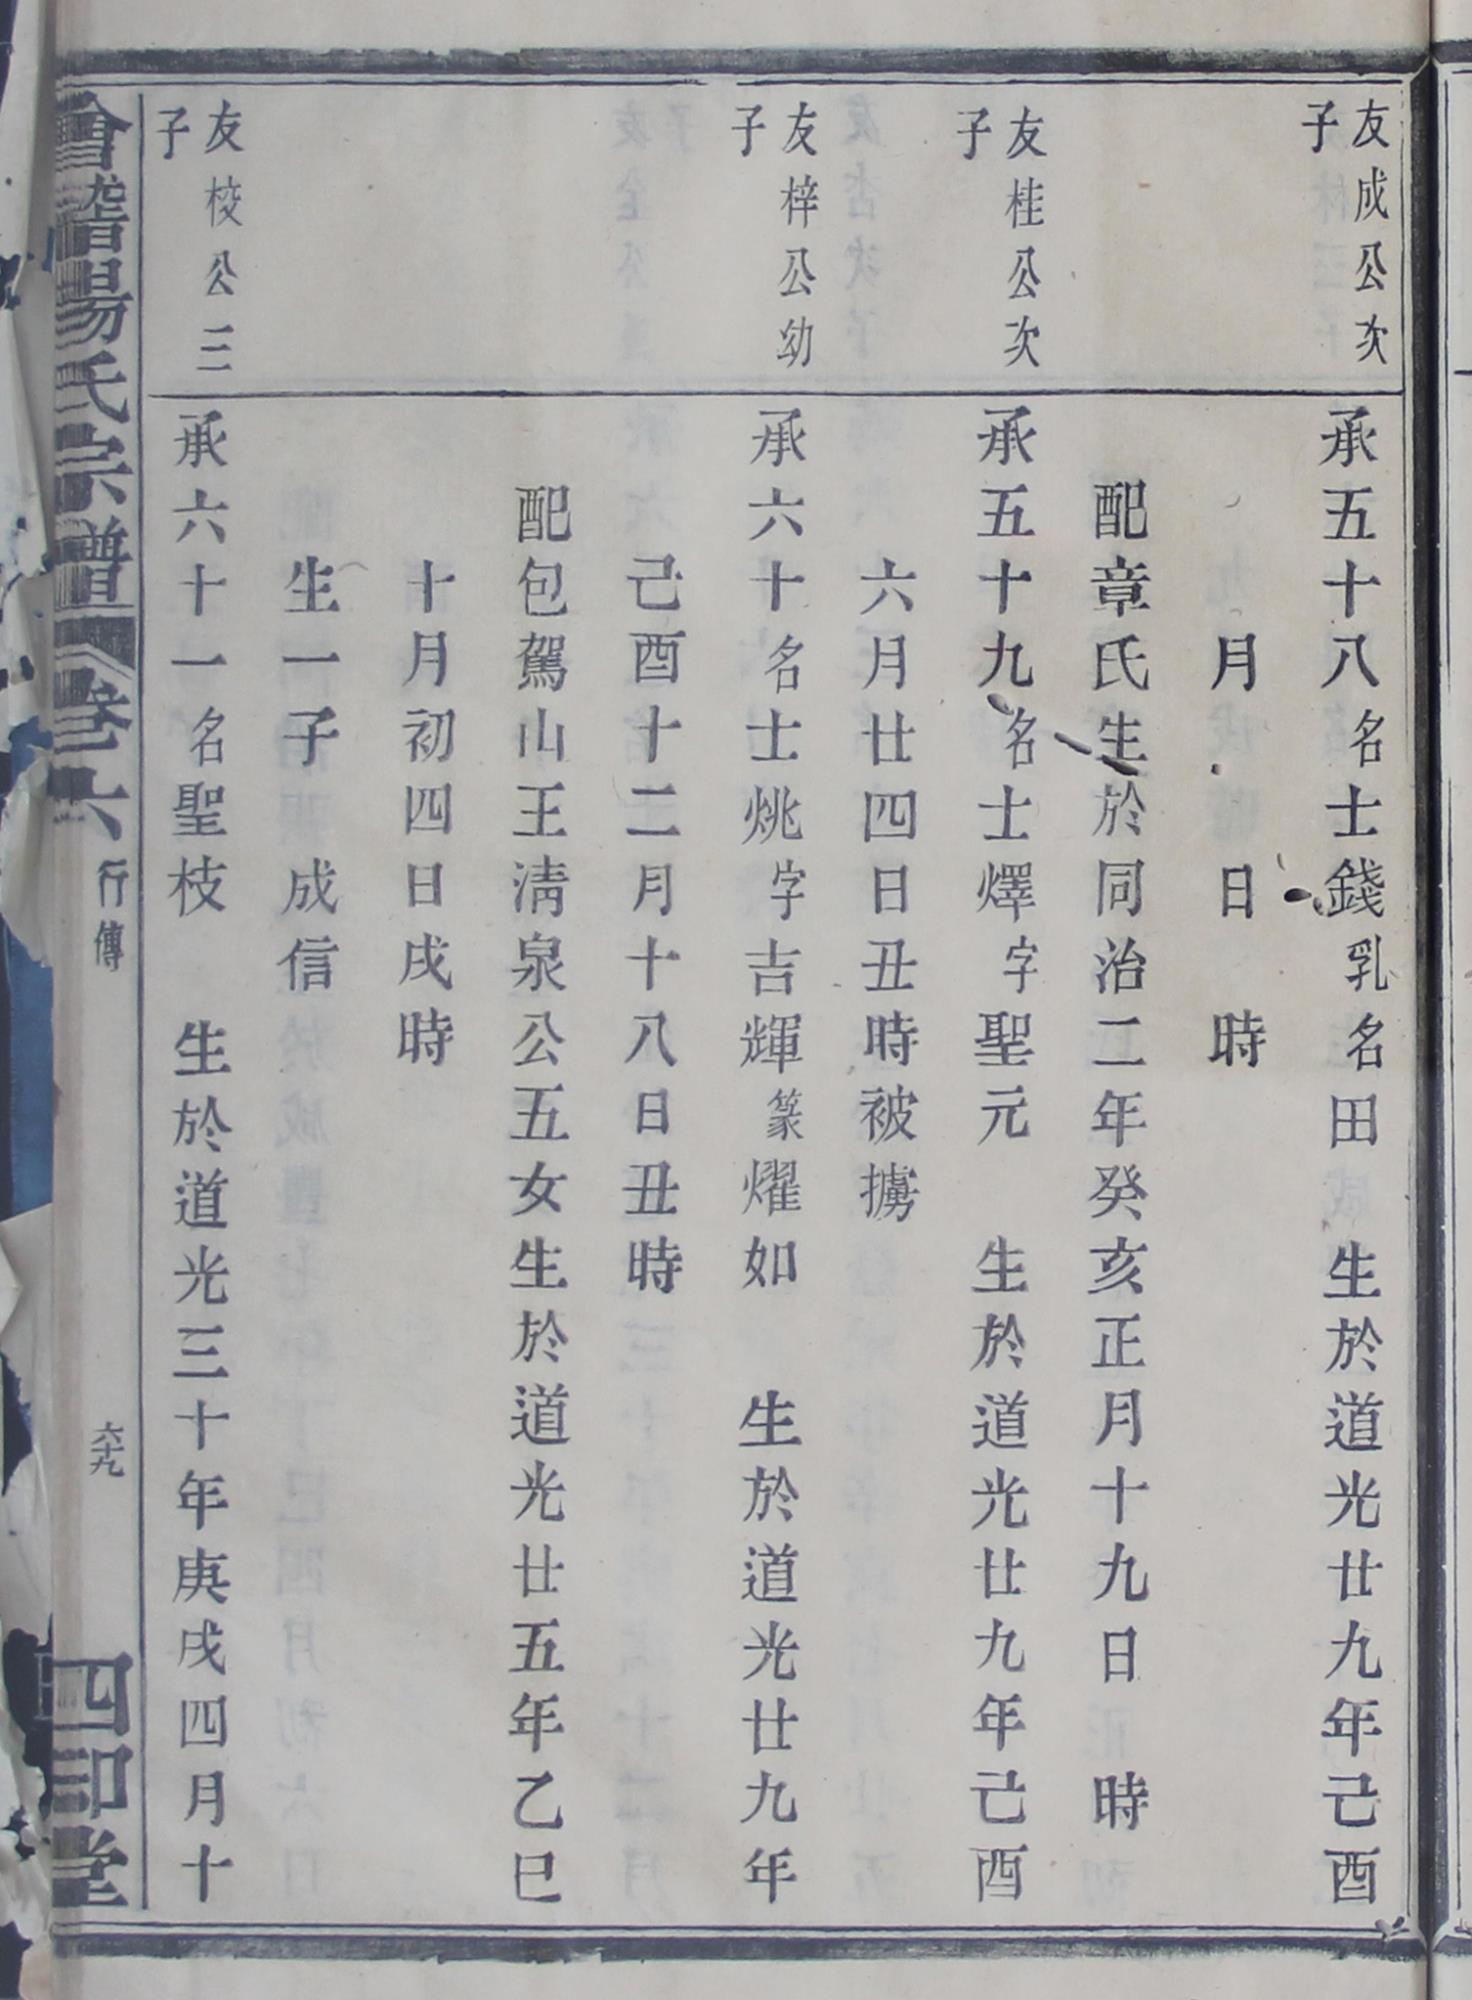 友成公次
子
承五十八名士錢乳名田　生於道光廿九年己酉
月　日　時
配章氏生於同治二年癸亥正月十九日　時
友桂公次
子
承五十九名士燡字聖元　生於道光廿九年己酉
六月廿四日丑時被擄
友梓公幼
子
承六十名士烑字吉輝篆燿如　生於道光廿九年
己酉十二月十八日丑時
配包駕山王淸泉公五女生於道光廿五年乙巳
十月初四日戌時
生一子成信
友校公三
子
承六十一名聖枝　生於道光三十年庚戌四月十
會稽陽氏宗譜 卷六 行傳 六十九 四印堂